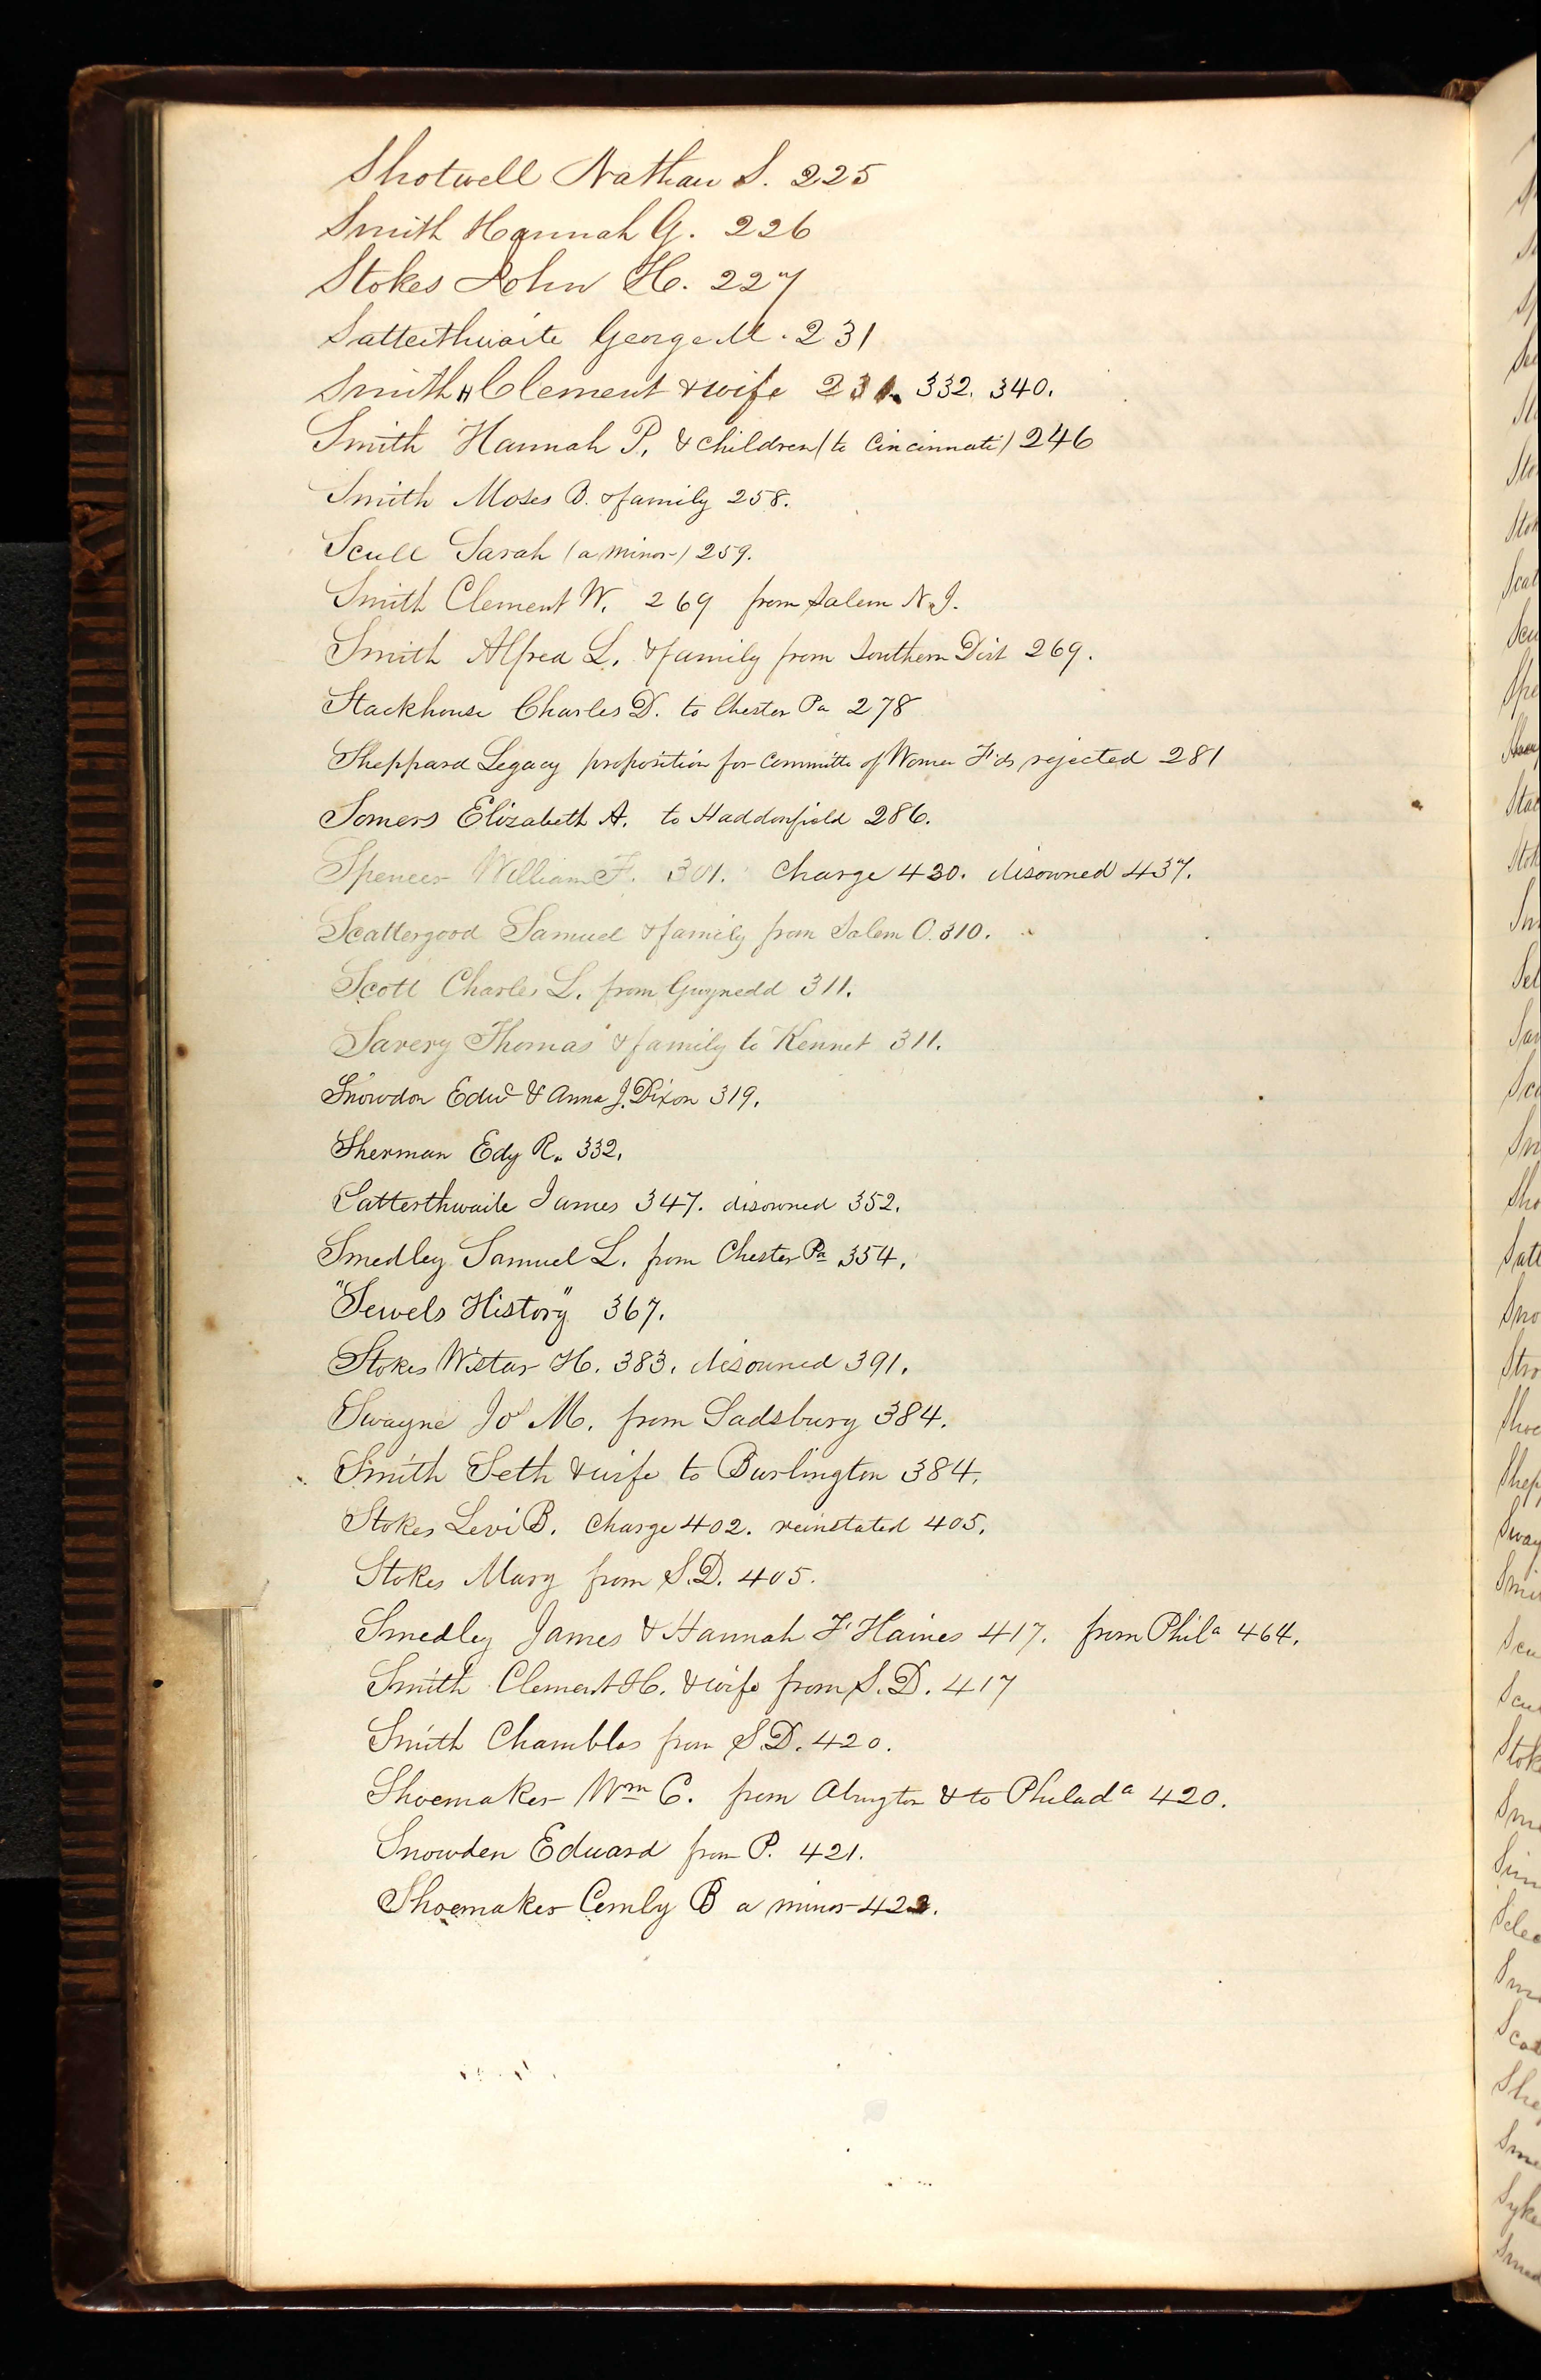 Shotwell Nathan S. 225
Smith Hannah G. 226
Stokes John H. 227
Satterthwaite George M. 231
Smith H Clement & wife 231. 332. 340.
Smith Hannah P. & children (to Cincinnati) 246
Smith Moses B. & family 258.
Scull Sarah (a minor) 259.
Smith Clement W. 269 from Salem N.J.
Smith Alfred L. & family from Southern Dist 269.
Stackhouse Charles D. to Chester Pa 278
Sheppard Legacy proposition for Committe of Women F'ds rejected 281
Somers Elizabeth A. to Haddonfield 286.
Spencer William F. 301. Charge 430. disowned 437.
Scattergood Samuel & family from Salem O. 310.
Scott Charles L. from Gwynedd 311.
Savery Thomas & family to Kennet 311.
Snowdon Edwd & Anna J. Dixon 319.
Sherman Edy R. 332.
Satterthwaite James 347. disowned 352.
Smedley Samuel L. from Chester Pa 354.
"Sewels History" 367.
Stokes Wistar H. 383. disowned 391.
Swayne Jos M. from Sadsbury 384.
Smith Seth & wife to Burlington 384.
Stokes Levi B. Charge 402. reinstated 405.
Stokes Mary from S.D. 405.
Smedley James & Hannah F Haines 417. from Phila 464.
Smith Clement H. & wife from S.D. 417
Smith Chambles from S.D. 420.
Shoemaker Wm C. from Abington & to Philada 420.
Snowden Edward from P. 421.
Shoemaker Comly B a minor 422.